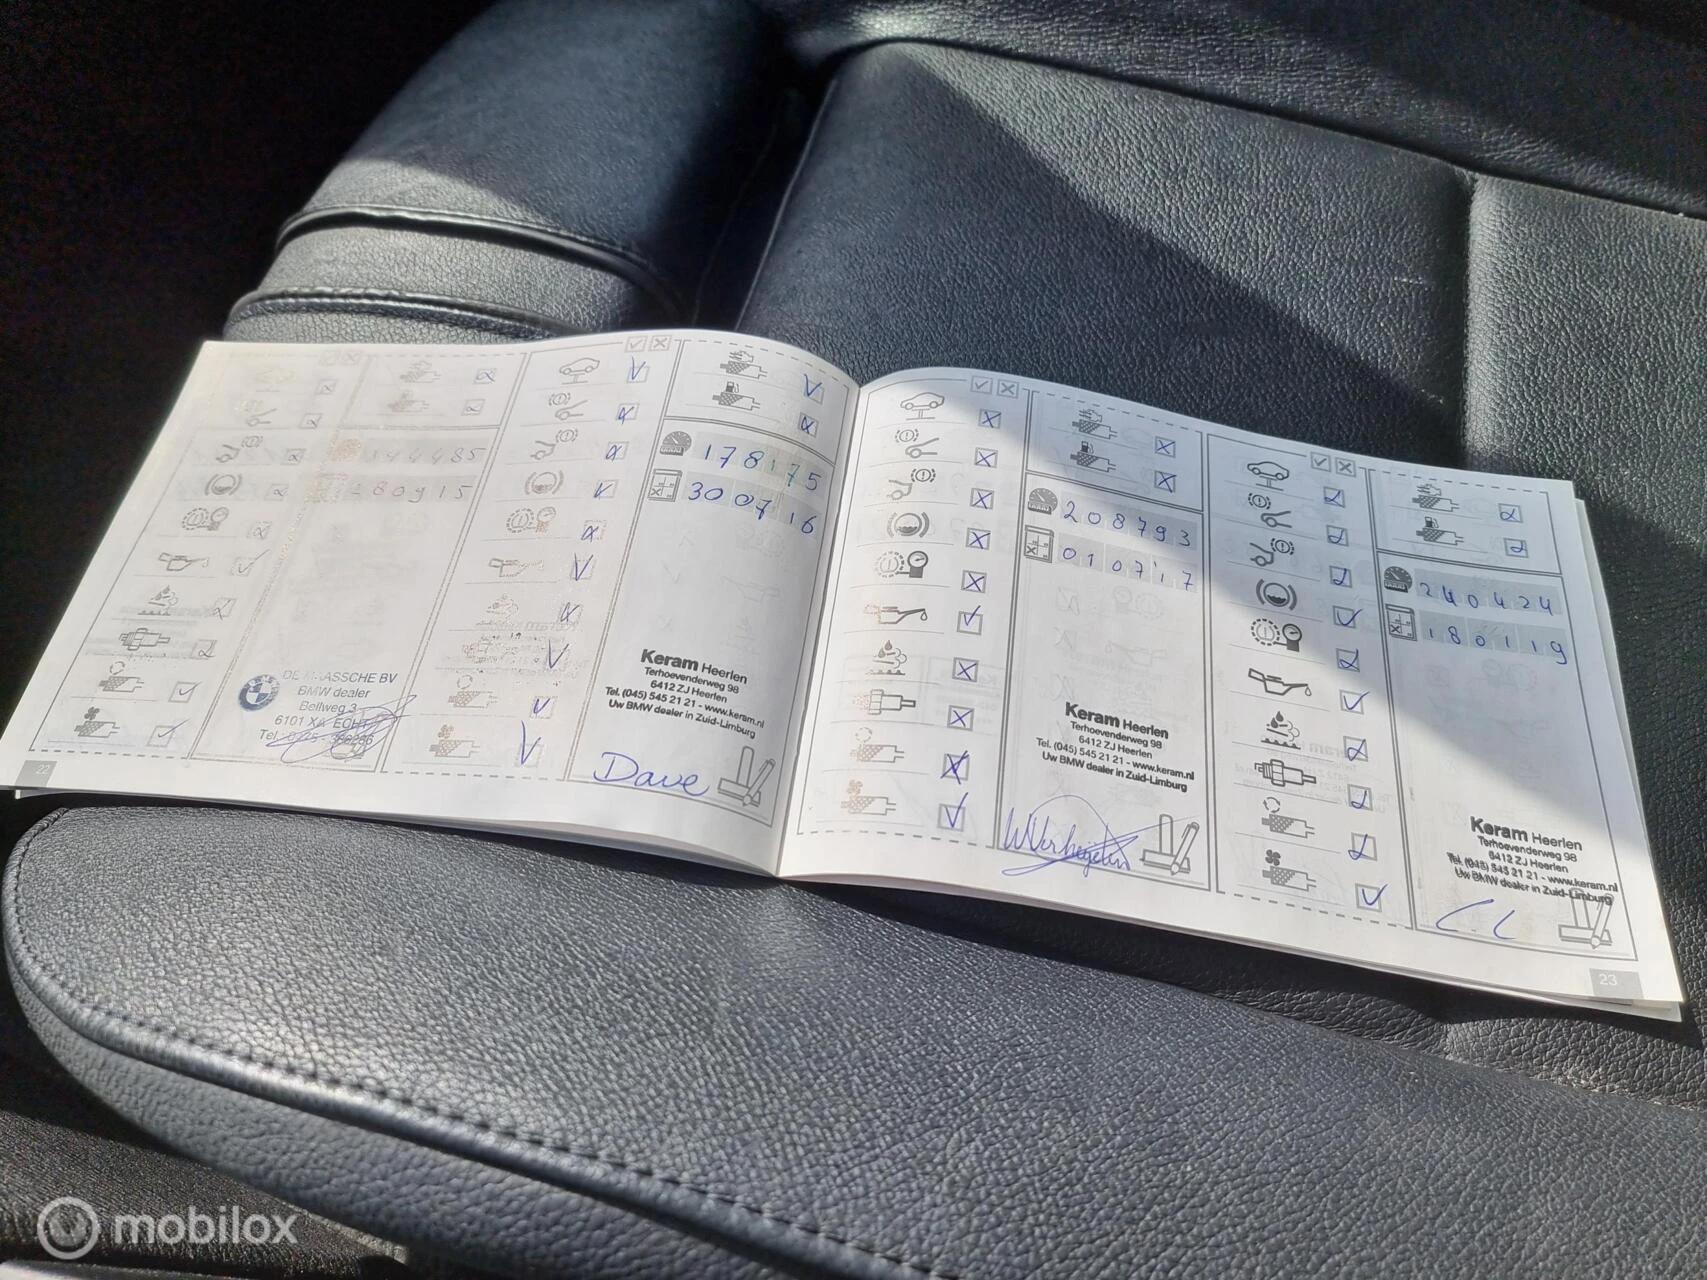 144485
280915
DE MAASSCHE BV
BMW dealer
Bellweg 3
6101 XA ECHT
22
178175
300716
Keram Heerlen
Terhoevenderweg 98
6412 ZJ Heerlen
Tel. (045) 545 21 21 - www.keram.nl
Uw BMW dealer in Zuid-Limburg
Dave
208793
010717
Keram Heerlen
Terhoevenderweg 98
6412 ZJ Heerlen
Tel. (045) 545 21 21 - www.keram.nl
Uw BMW dealer in Zuid-Limburg
240424
180119
Keram Heerlen
Terhoevenderweg 98
6412 ZJ Heerlen
Tel. (045) 545 21 21 - www.keram.nl
Uw BMW dealer in Zuid-Limburg
C.C
23
mobilox